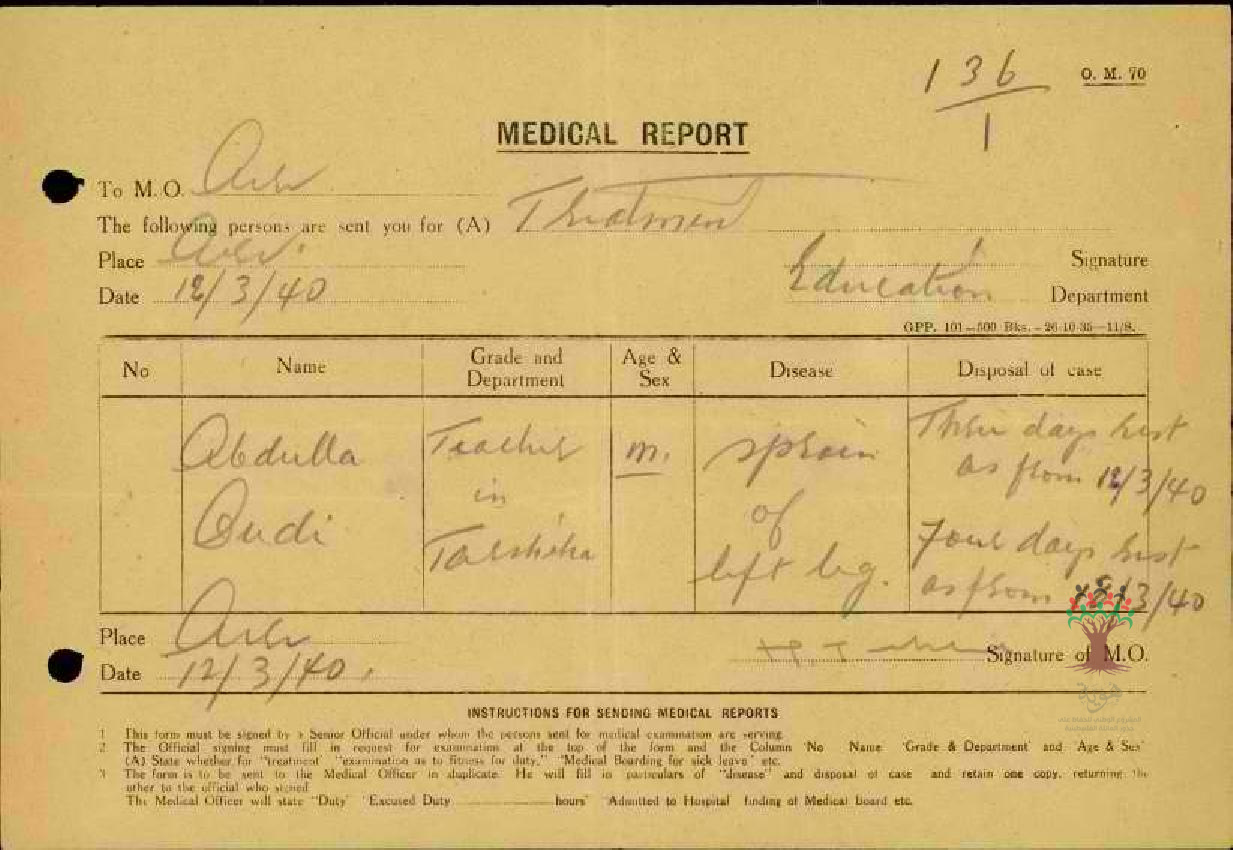 136
1
O. M. 70
MEDICAL REPORT
To M. O. Acre
The following persons are sent you for (A) Treatment
Place Acre.
Signature
Date 12/3/40
Education Department
GPP. 101—500 Bks.—26-10-35—11/8.
No Name Grade and Department Age & Sex Disease Disposal of case
Abdulla Teacher m. sprain Three days rest
in as from 12/3/40
of Four days rest
Tarshiha left leg. as from /3/40
Place Acre
Signature of M.O.
Date 12/3/40
هوية
INSTRUCTIONS FOR SENDING MEDICAL REPORTS
1 This form must be signed by a Senior Official under whom the persons sent for medical examination are serving
2 The Official signing must fill in request for examination at the top of the form and the Column 'No Name 'Grade & Department' and Age & Sex'
(A) State whether for "treatment" "examination as to fitness for duty," "Medical Boarding for sick leave" etc.
3 The form is to be sent to the Medical Officer in duplicate. He will fill in particulars of "disease" and disposal of case and retain one copy, returning the
other to the official who signed
The Medical Officer will state "Duty" 'Excused Duty hours' 'Admitted to Hospital' finding of Medical Board etc.